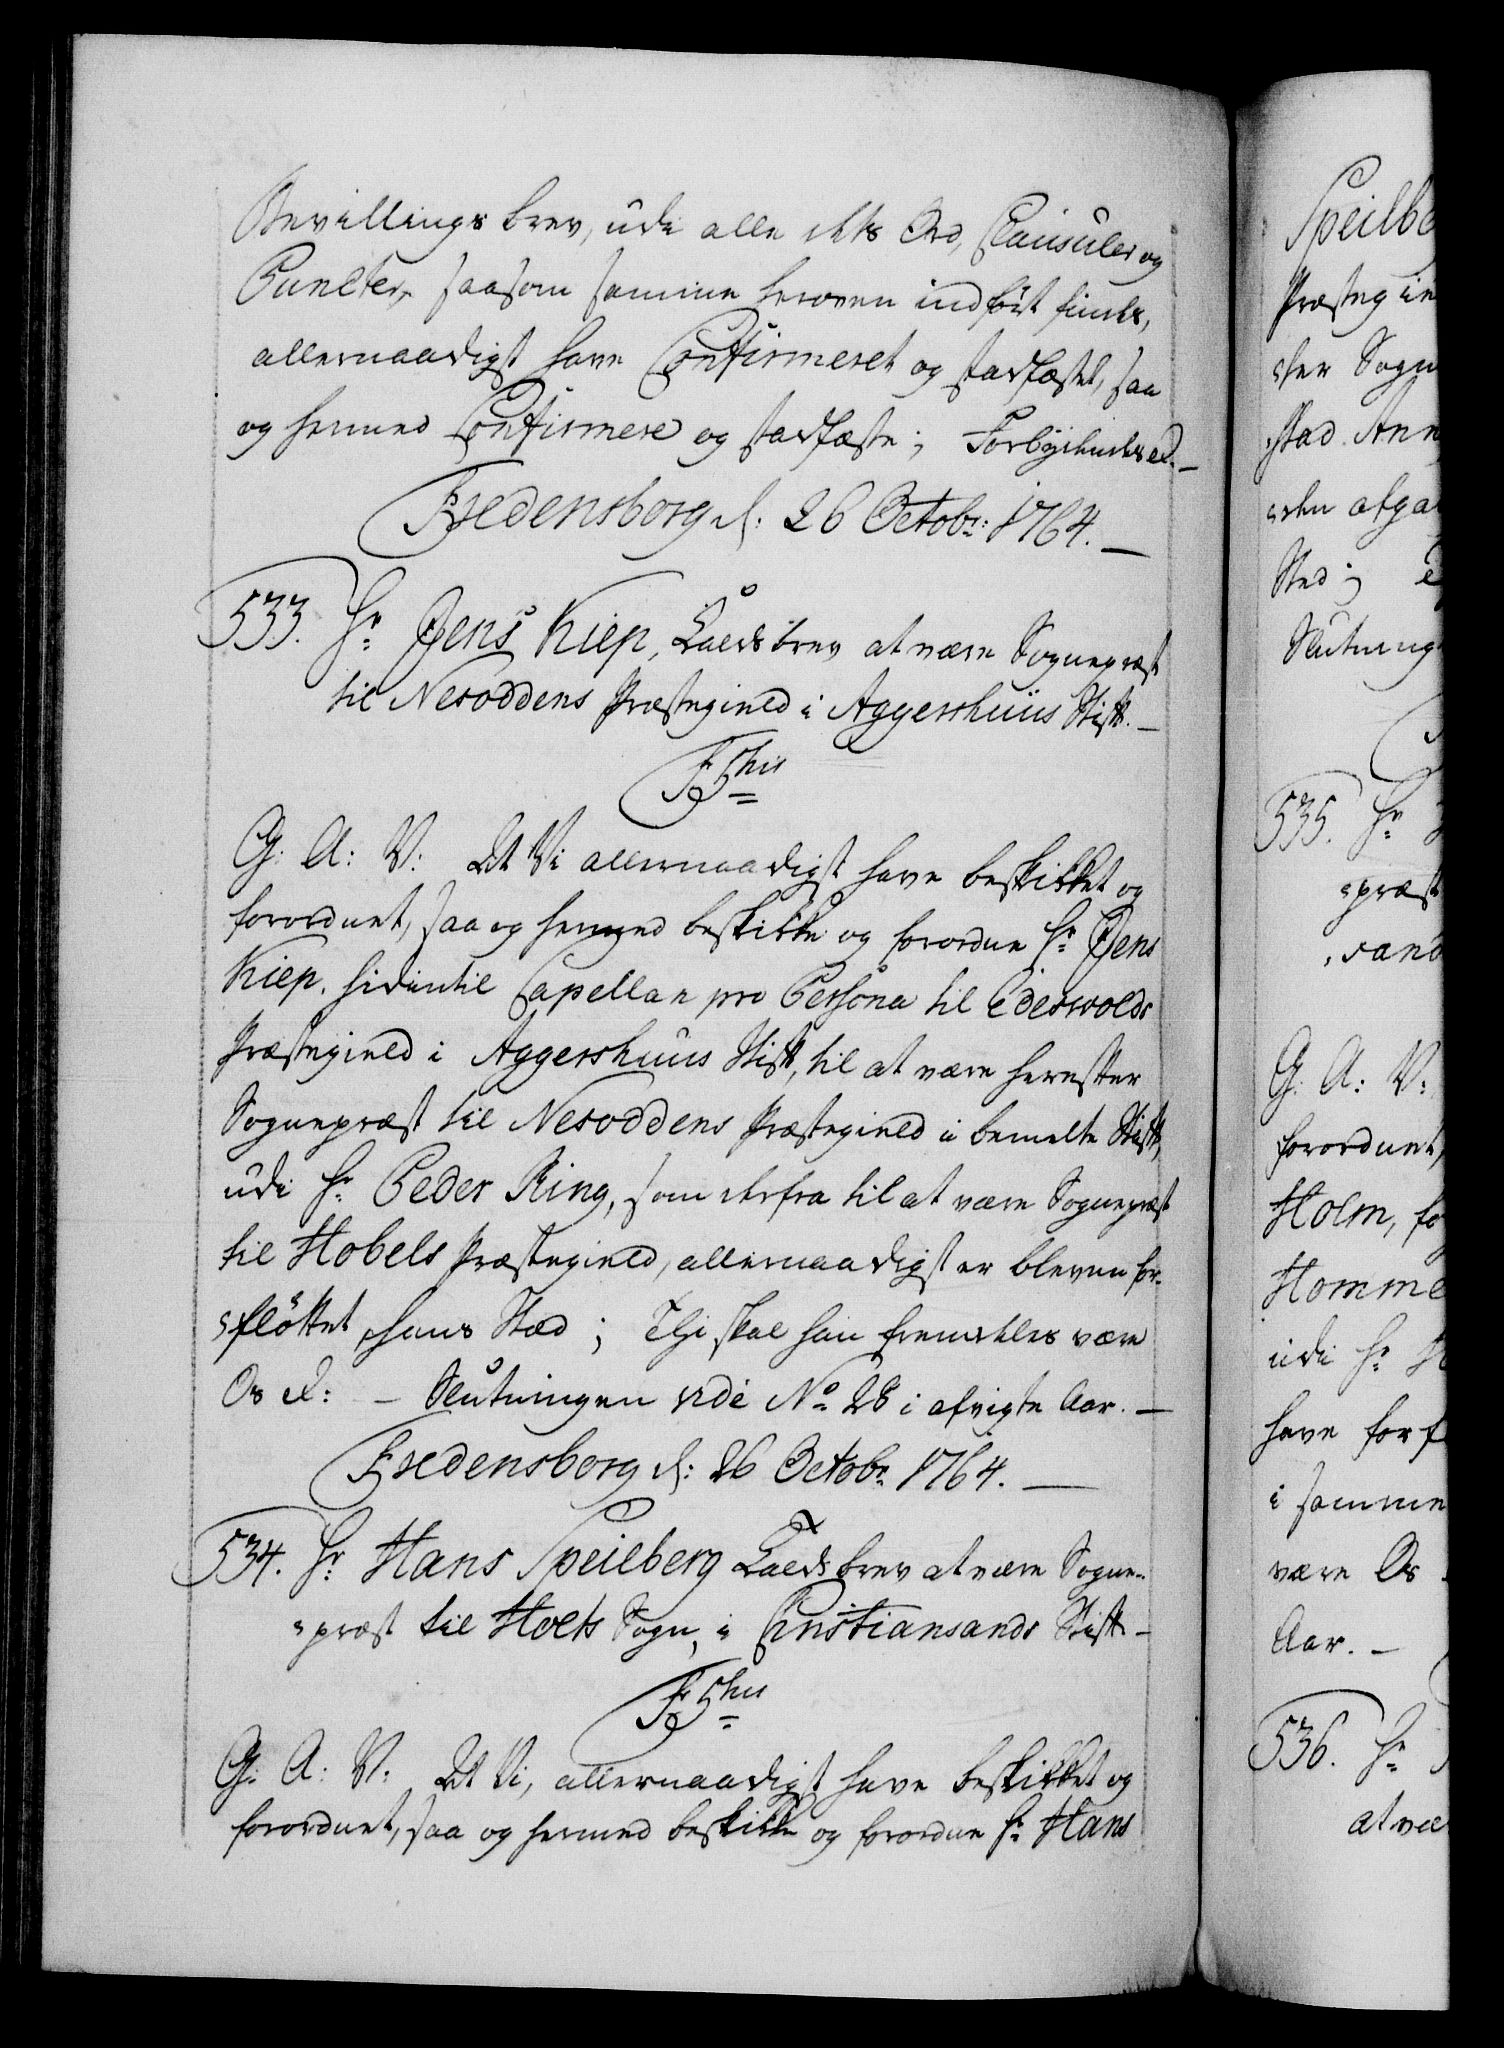 Bevillings brev, udi alle dets Ord, Clausuler og
Puncter, saasom samme heroven indført findes,
allernaadigst have Confirmeret og stadfæstet, saa
og hermed Confirmere og stadfæste; Forbydendes &.
Fredensborg d: 26 Octobr: 1764.
533. Hr Jens Kiep, Kalds brev at være Sognepræst
til Nesoddens Præstegield i Aggershuus Stift.
F 5tus
G: A: V: At Vi allernaadigst have beskikket og
forordnet, saa og hermed beskikke og forordne Hr Jens
Kiep, hidindtil Capellan pro Persona til Edesvolds
Præstegield i Aggershuus Stift, til at være herefter
Sognepræst til Nesoddens Præstegield i bemelte Stift,
udi Hr Peder Ring, som derfra til at være Sognepræst
til Hobels Præstegield, allernaadigst er bleven for-
fløttet, hans Sted; Thi skal han fremdeles være
Os &: - Slutningen vide No 28 i afvigte Aar.
Fredensborg d: 26 Octobr 1764.
534. Hr Hans Speilberg Kalds brev at være Sogne-
præst til Holts Sogn, i Christiansands Stift
F 5tus
G: A: V: At Vi, allernaadigst have beskikket og
forordnet, saa og hermed beskikke og forordne Hr Hans
Speilbe
Præstegie
der Sogn
stad. Ann
den afga
Sted;
Slutning
535. Hr
præst
sand
G: A: V:
forordnet,
Holm, fo
Homme
udi Hr
have forf
i samme
være Os
Aar.
536. Hr
at væ